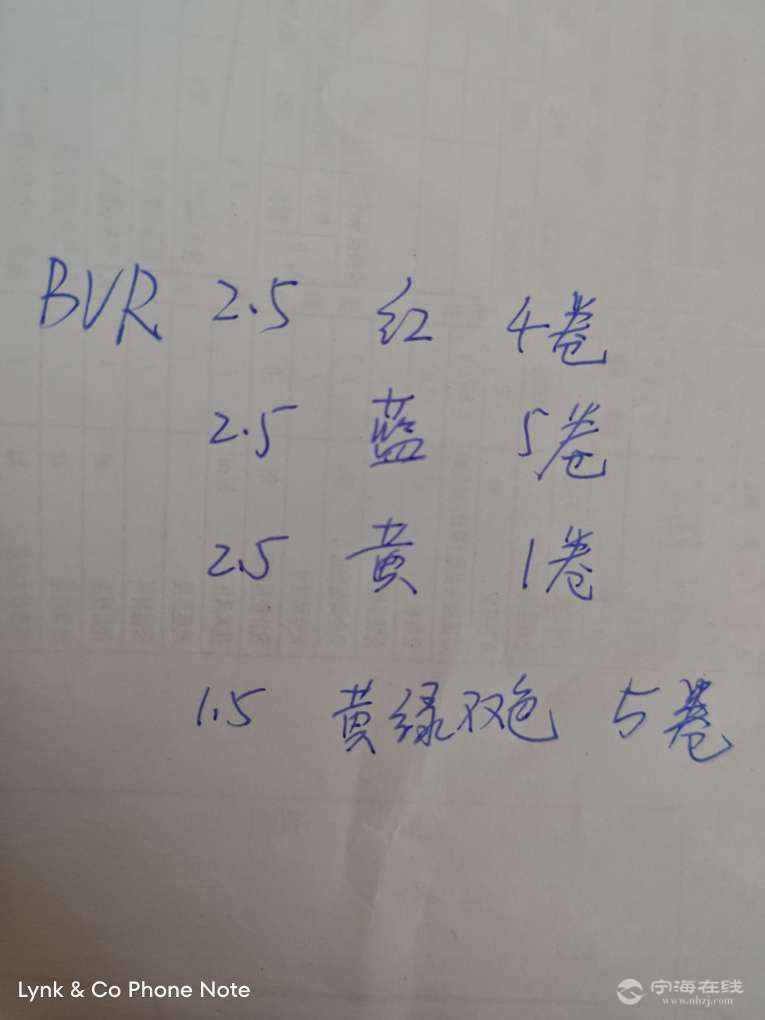 BVR 2.5 红 4卷
2.5 蓝 5卷
2.5 黄 1卷
1.5 黄绿双色 5卷
Lynk & Co Phone Note
宁海在线
www.nhzj.com